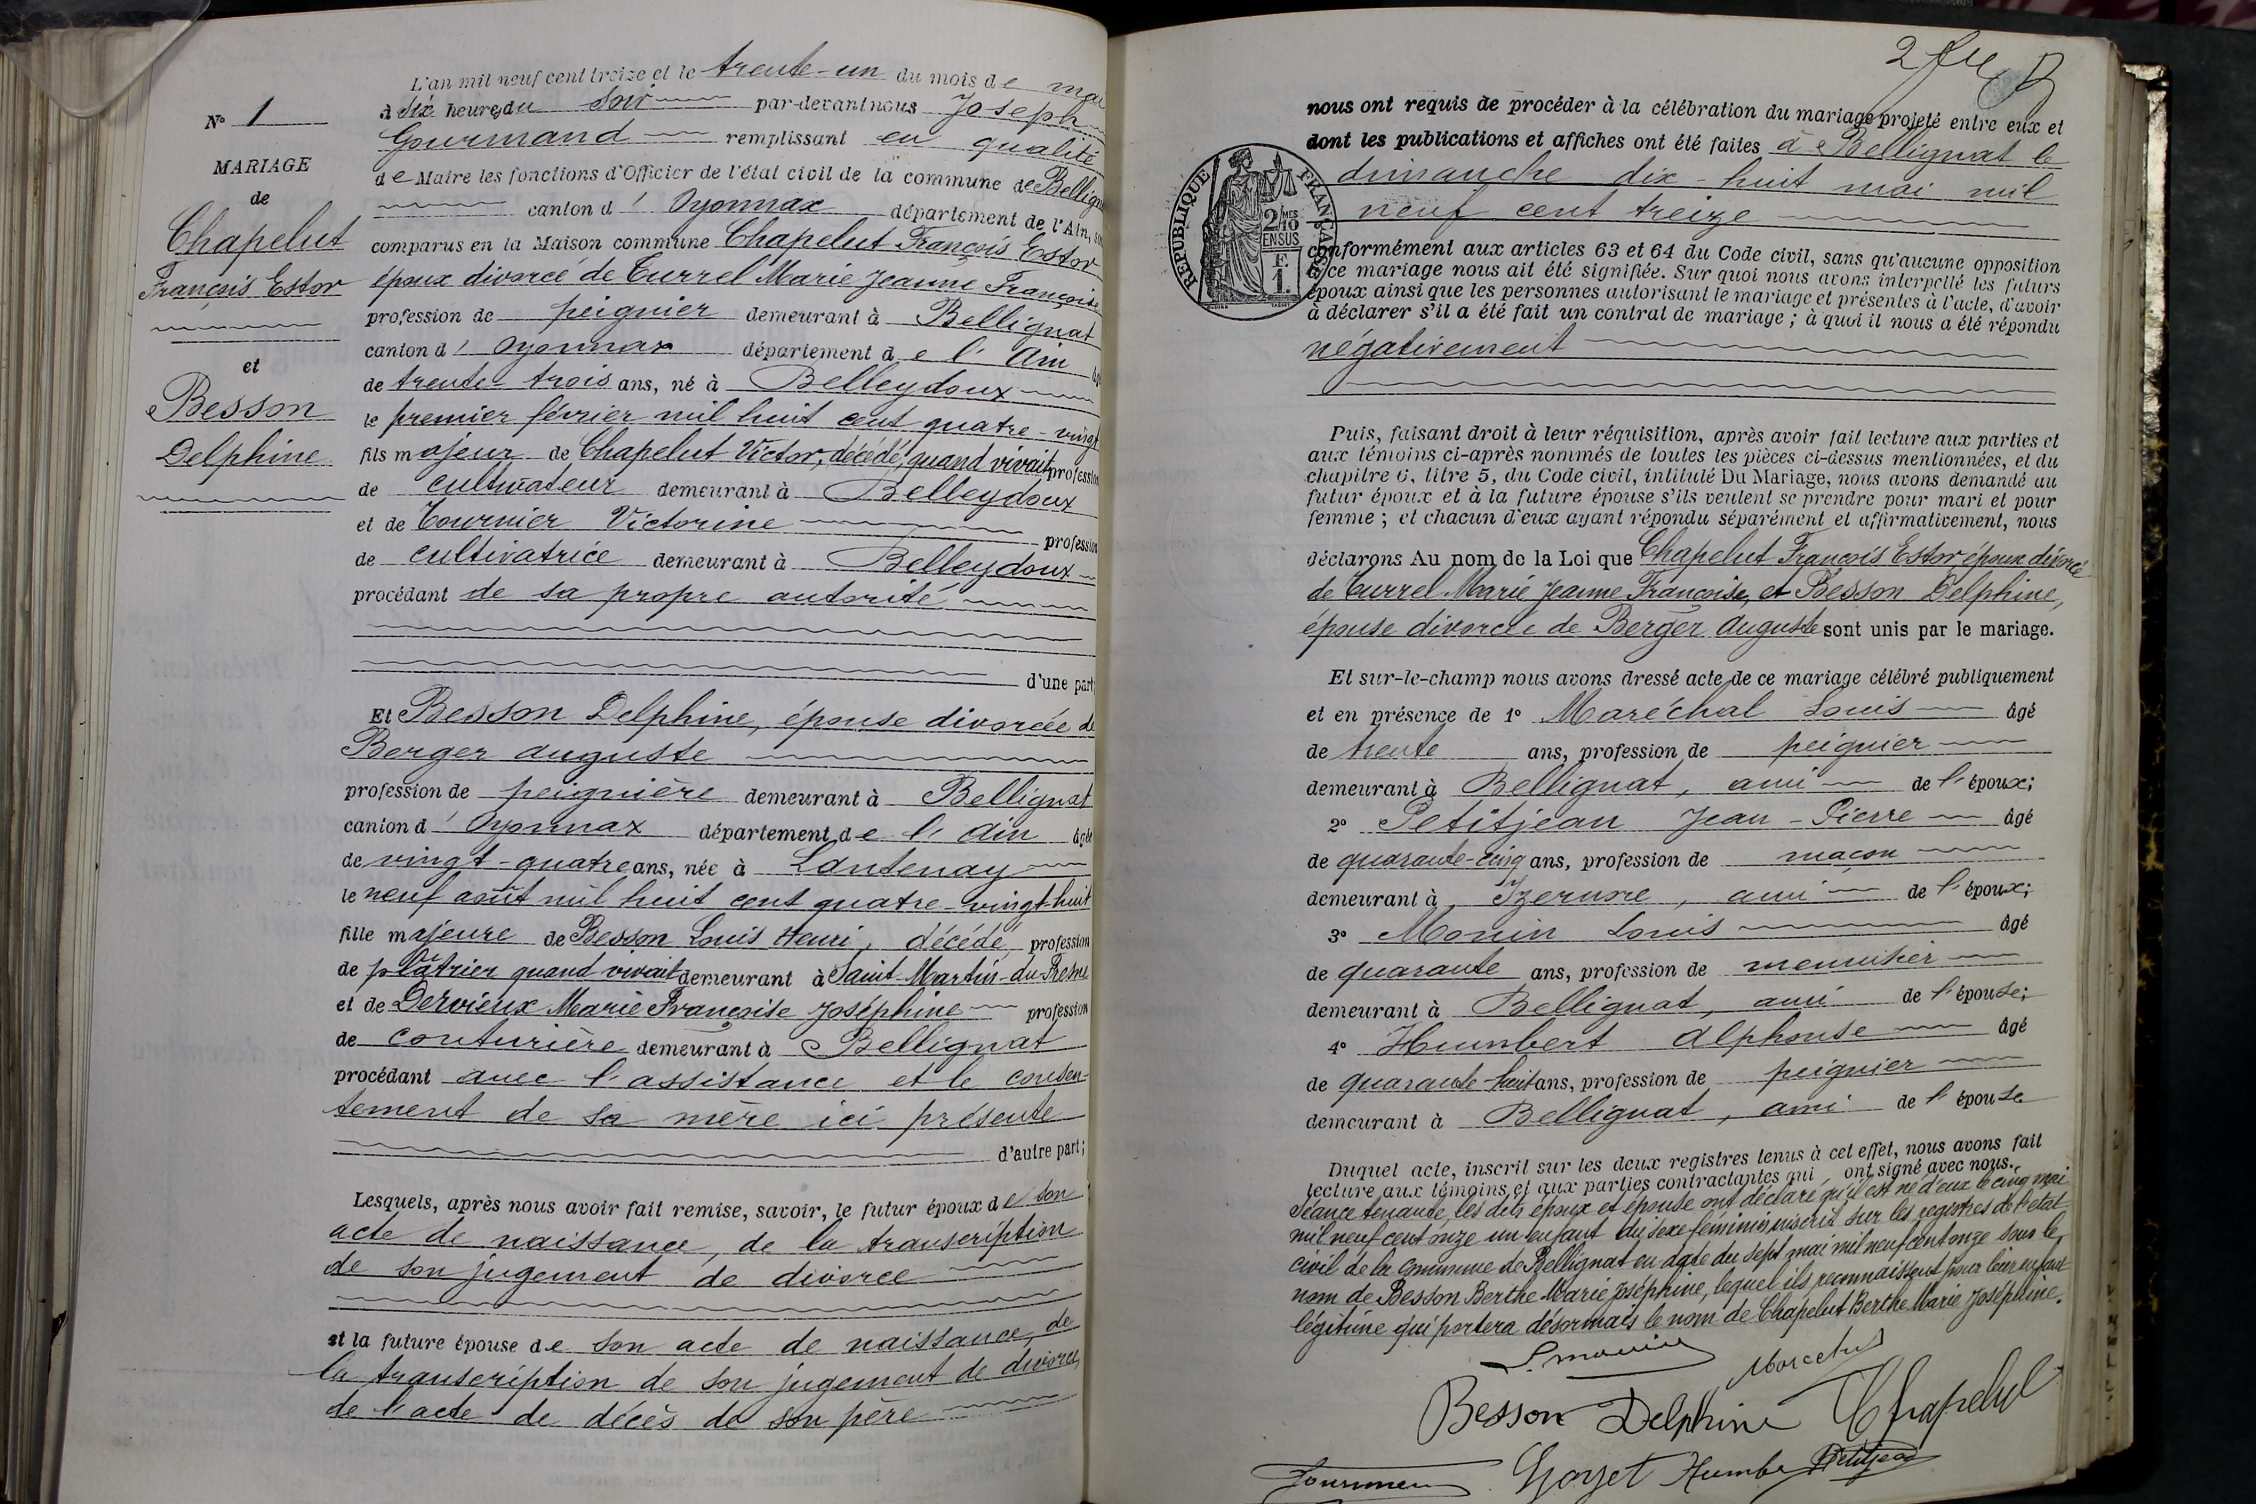 N° 1
MARIAGE
de
Chapelut
François Estor
et
Besson
Delphine
L'an mil neuf cent treize et le trente-un du mois de mai
à six heures du soir par-devant nous Joseph
Gourmand remplissant en qualité
de Maire les fonctions d'Officier de l'état civil de la commune de Bellignat
canton d'Oyonnax département de l'Ain, sont
comparus en la Maison commune Chapelut François Estor
époux divorcé de Turrel Marie Jeanne Françoise
profession de peignier demeurant à Bellignat
canton d'Oyonnax département de l'Ain âgé
de trente-trois ans, né à Belleydoux
le premier février mil huit cent quatre-vingt
fils majeur de Chapelut Victor, décédé, quand vivait profession
de cultivateur demeurant à Belleydoux
et de Tournier Victorine profession
de cultivatrice demeurant à Belleydoux
procédant de sa propre autorité
d'une part;
Et Besson Delphine, épouse divorcée de
Berger Auguste
profession de peignière demeurant à Bellignat
canton d'Oyonnax département de l'Ain âgée
de vingt-quatre ans, née à Lantenay
le neuf août mil huit cent quatre-vingt-huit
fille majeure de Besson Louis Henri, décédé, profession
de plâtrier quand vivait demeurant à Saint-Martin-du-Fresne
et de Dervieux Marie Françoise Joséphine profession
de couturière demeurant à Bellignat
procédant avec l'assistance et le consen-
tement de sa mère ici présente
d'autre part;
Lesquels, après nous avoir fait remise, savoir, le futur époux de son
acte de naissance, de la transcription
de son jugement de divorce
et la future épouse de son acte de naissance, de
la transcription de son jugement de divorce,
de l'acte de décès de son père
2
nous ont requis de procéder à la célébration du mariage projeté entre eux et
dont les publications et affiches ont été faites à Bellignat le
dimanche dix-huit mai mil
neuf cent treize
RÉPUBLIQUE FRANÇAISE
2/10 MES
EN SUS
1 F.
conformément aux articles 63 et 64 du Code civil, sans qu'aucune opposition
à ce mariage nous ait été signifiée. Sur quoi nous avons interpellé les futurs
époux ainsi que les personnes autorisant le mariage et présentes à l'acte, d'avoir
à déclarer s'il a été fait un contrat de mariage; à quoi il nous a été répondu
négativement
Puis, faisant droit à leur réquisition, après avoir fait lecture aux parties et
aux témoins ci-après nommés de toutes les pièces ci-dessus mentionnées, et du
chapitre 6, titre 5, du Code civil, intitulé Du Mariage, nous avons demandé au
futur époux et à la future épouse s'ils veulent se prendre pour mari et pour
femme; et chacun d'eux ayant répondu séparément et affirmativement, nous
déclarons Au nom de la Loi que Chapelut François Estor, époux divorcé
de Turrel Marie Jeanne Françoise, et Besson Delphine,
épouse divorcée de Berger Auguste sont unis par le mariage.
Et sur-le-champ nous avons dressé acte de ce mariage célébré publiquement
et en présence de 1° Maréchal Louis âgé
de trente ans, profession de peignier
demeurant à Bellignat, ami de l'époux;
2° Petitjean Jean-Pierre âgé
de quarante-cinq ans, profession de maçon
demeurant à Izernore, ami de l'époux;
3° Monin Louis âgé
de quarante ans, profession de menuisier
demeurant à Bellignat, ami de l'épouse;
4° Humbert Alphonse âgé
de quarante-huit ans, profession de peignier
demeurant à Bellignat, ami de l'épouse
Duquel acte, inscrit sur les deux registres tenus à cet effet, nous avons fait
lecture aux témoins et aux parties contractantes qui ont signé avec nous.
Séance tenante, les dits époux et épouse ont déclaré qu'il est né d'eux le cinq mai
mil neuf cent onze un enfant du sexe féminin inscrit sur les registres de l'état
civil de la commune de Bellignat en date du sept mai mil neuf cent onze sous le
nom de Besson Berthe Marie Joséphine, lequel ils reconnaissent pour leur enfant
légitime qui portera désormais le nom de Chapelut Berthe Marie Joséphine.
L. Monin
Besson Delphine Chapelut
Humbert Petitjean